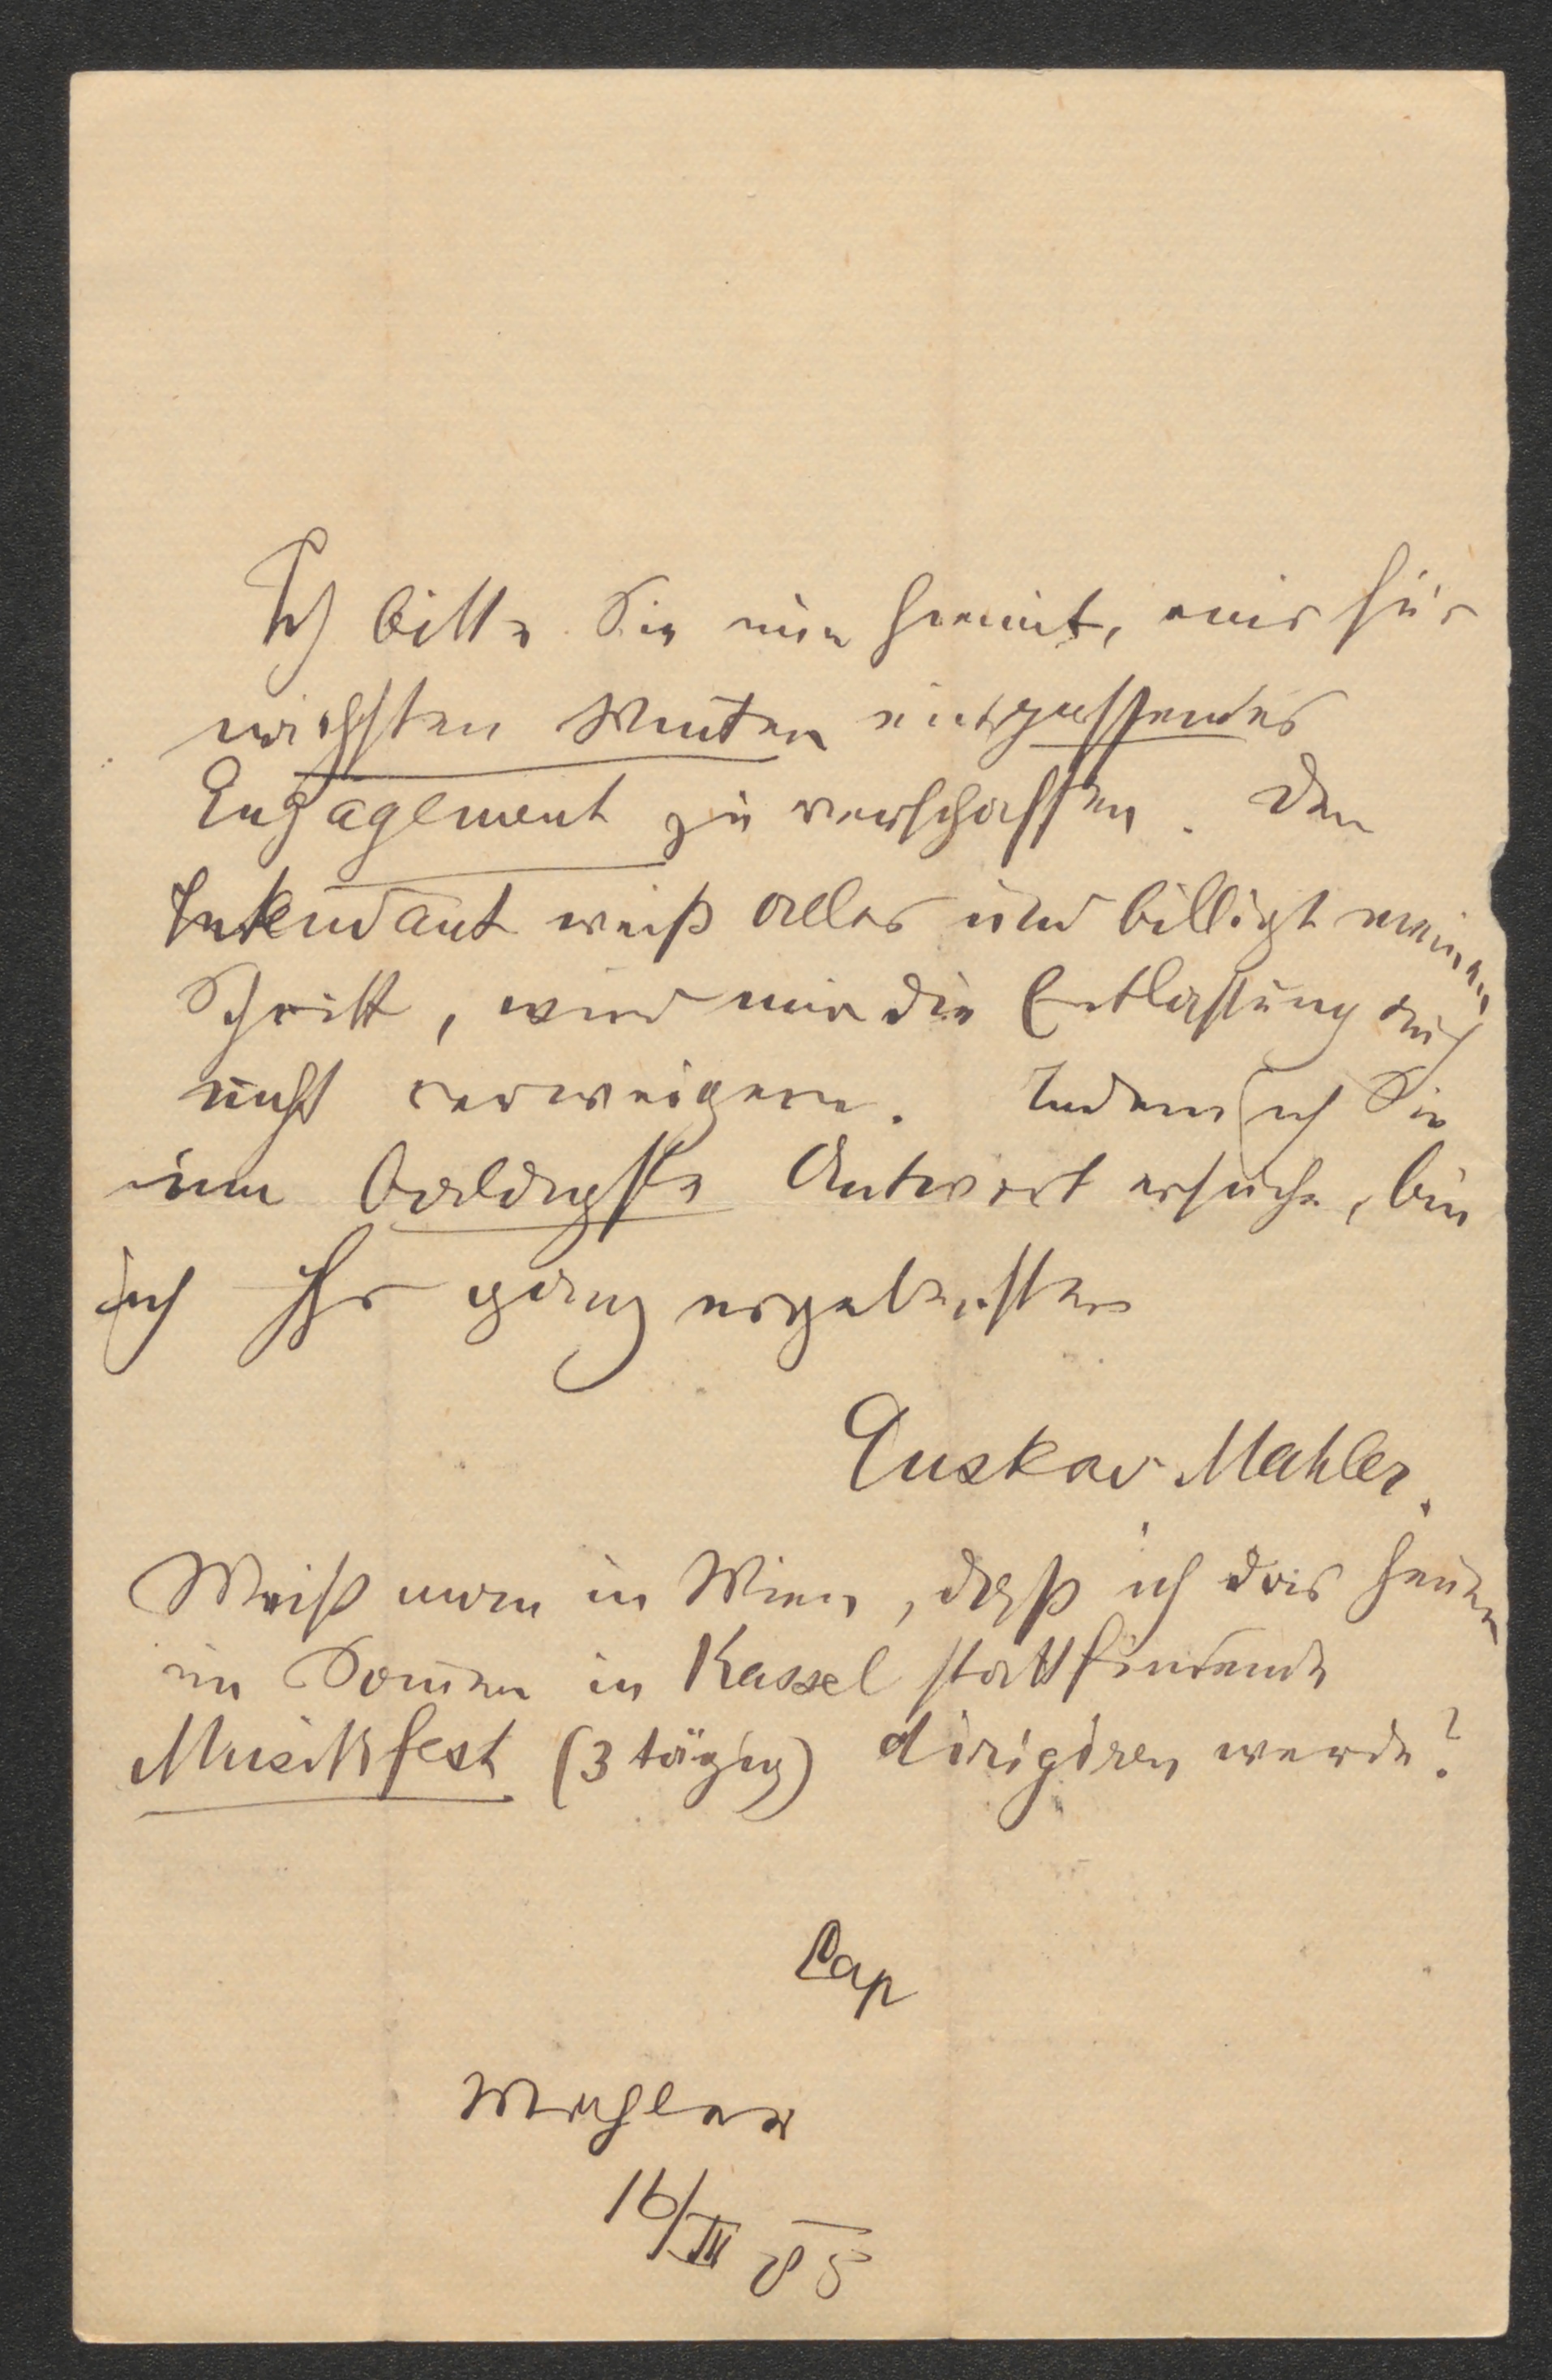 Ich bitte Sie nun hiemit, mir für
nächsten Winter ein passendes
Engagement zu verschaffen. Der
Intendant weiß alles und billigt meinen
Schritt, wird mir die Entlassung auch
nicht verweigern. Indem ich Sie
um baldigste Antwort ersuche, bin
ich Ihr ganz ergebenster
Gustav Mahler.
Weiß man in Wien, daß ich das heuer
im Sommer in Kassel stattfindende
Musikfest (3 tägig) dirigiren werde?
Cap
Mahler
16/III 85